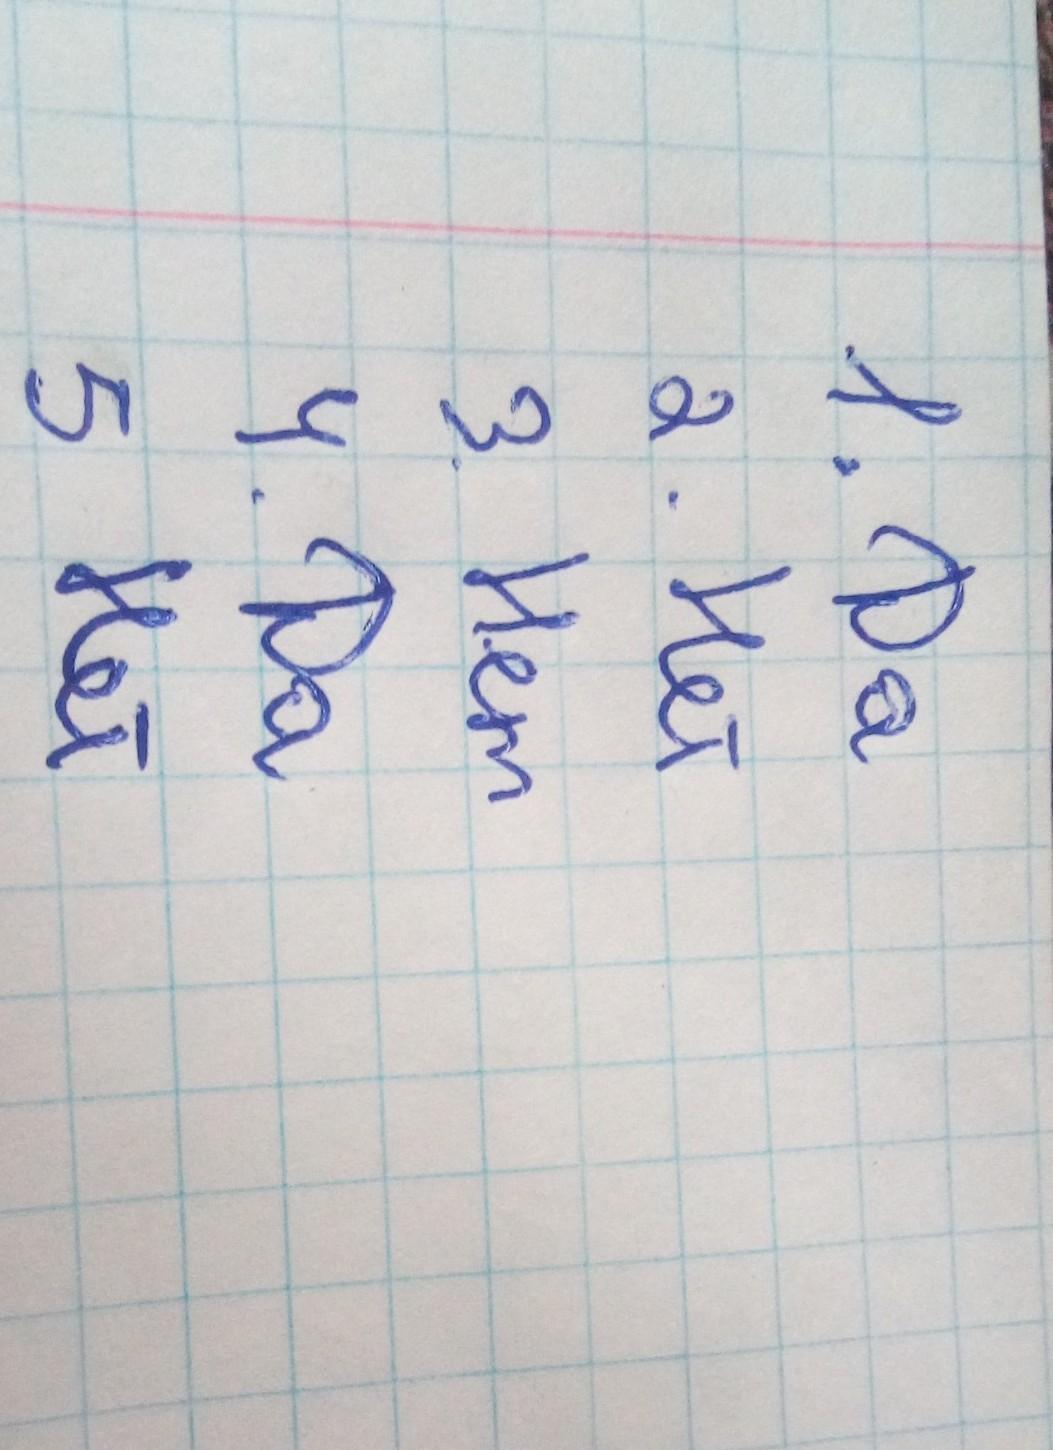 1. Да
2. Нет
3. Нет
4. Да
5 Нет